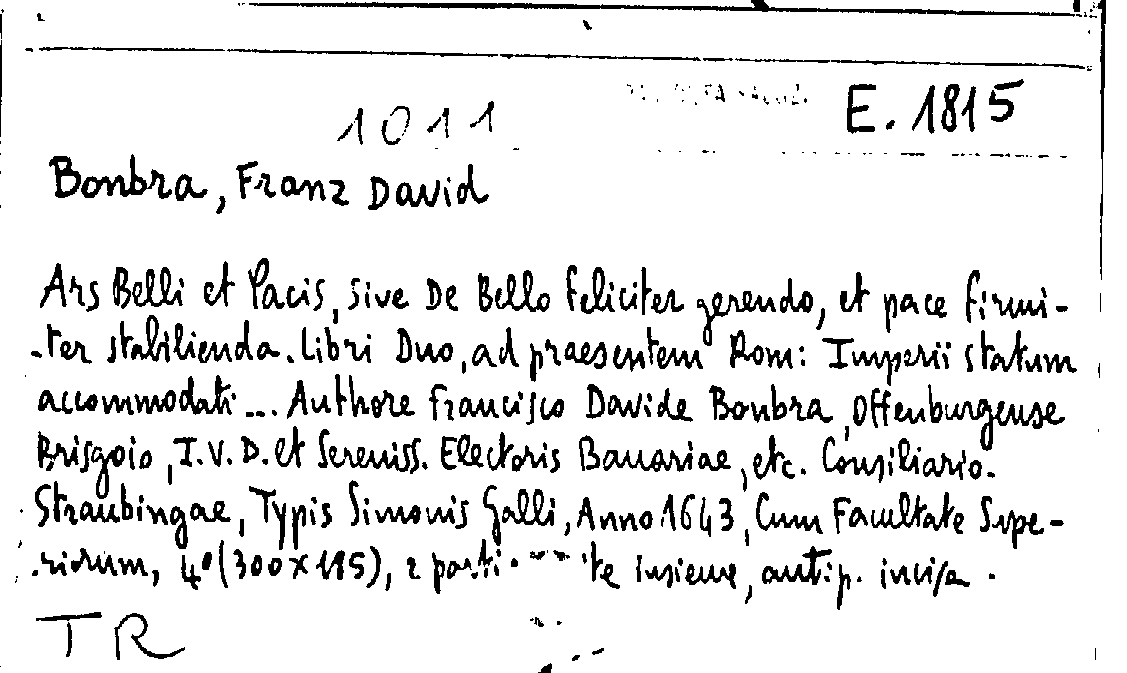 E. 1815
1011
Bonbra, Franz David
Ars Belli et Pacis, sive De Bello feliciter gerendo, et pace firmi-
-ter stabilienda. Libri Duo, ad praesentem Rom: Imperii statum
accommodati... Authore Francisco Davide Bonbra, Offenburgense
Brisgoio, I.V.D. et Sereniss. Electoris Bauariae, etc. Consiliario.
Straubingae, Typis Simonis Galli, Anno 1643, Cum Facultate Supe-
-riorum, 4° (300×195), 2 parti insieme, antip. incisa.
TR